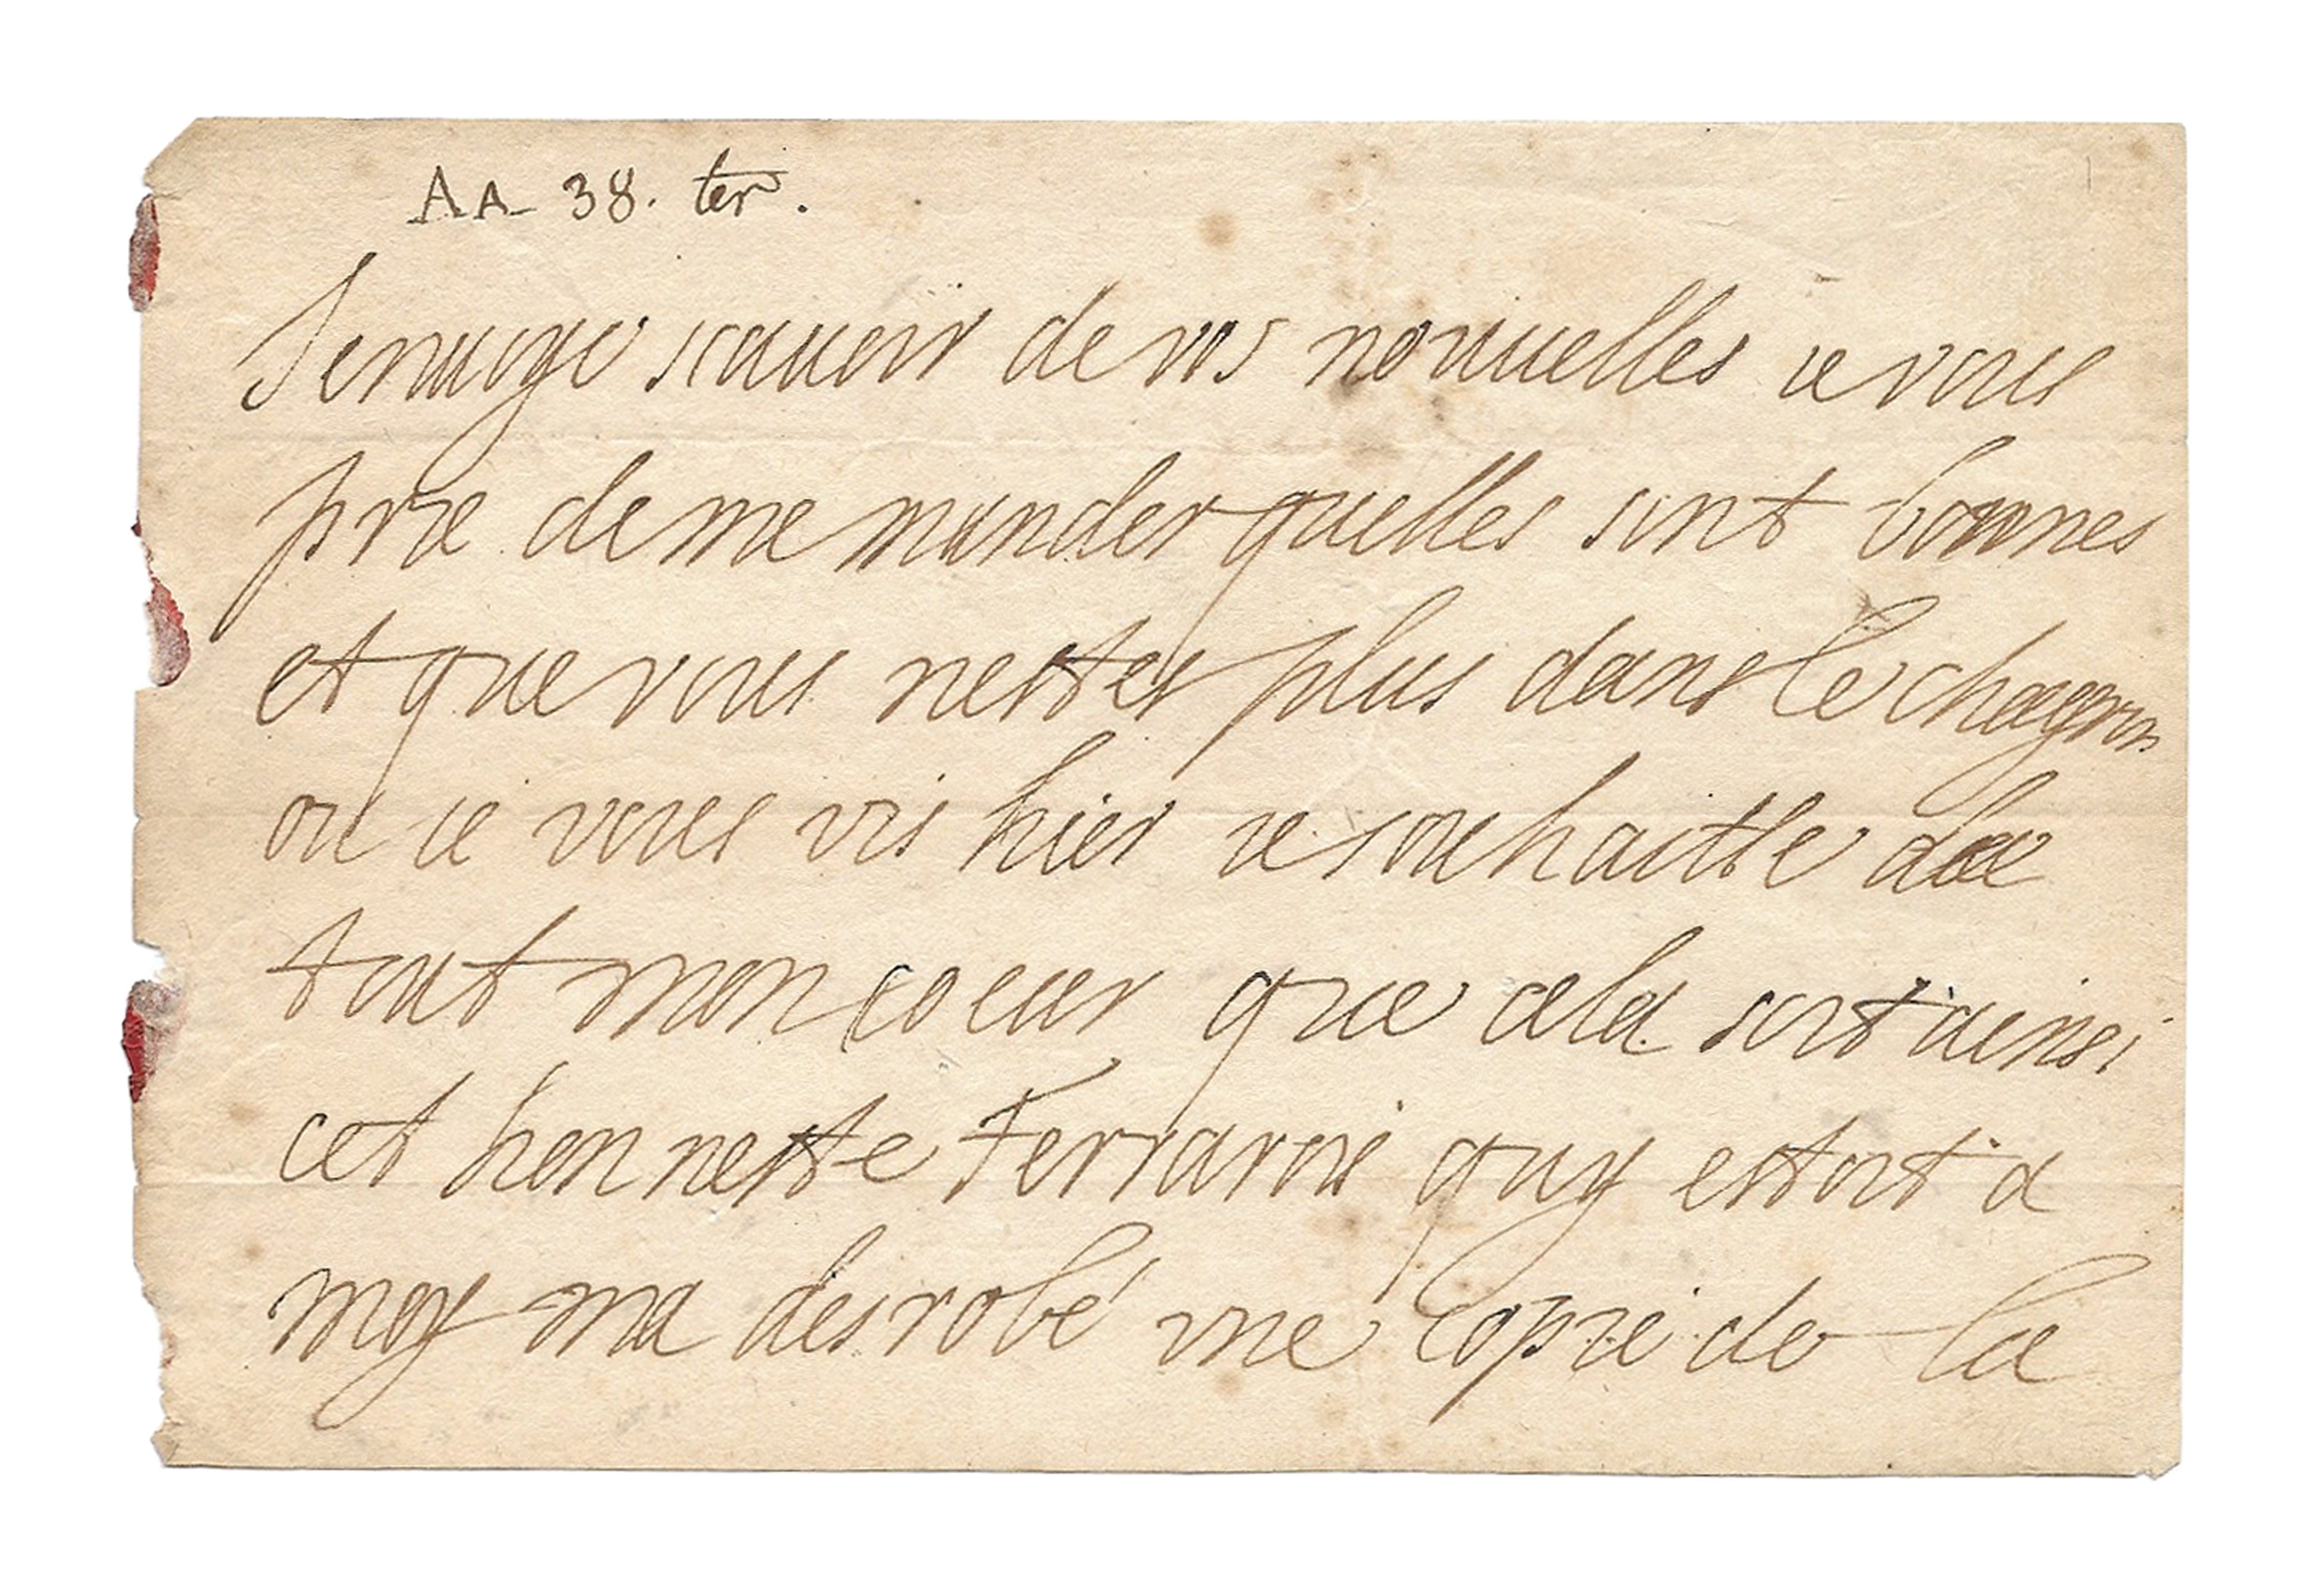 AA 38. ter.
Jenuoye scauoir de vos nouuelles ie vous
prie de me mander quelles sont bonnes
et que vous nestes plus dans le chagrin
ou ie vous vis hier ie souhaitte de
tout mon coeur que cela soit ainsi
cet honneste Ferrarois quy estoit a
moy ma desrobé vne copie de la